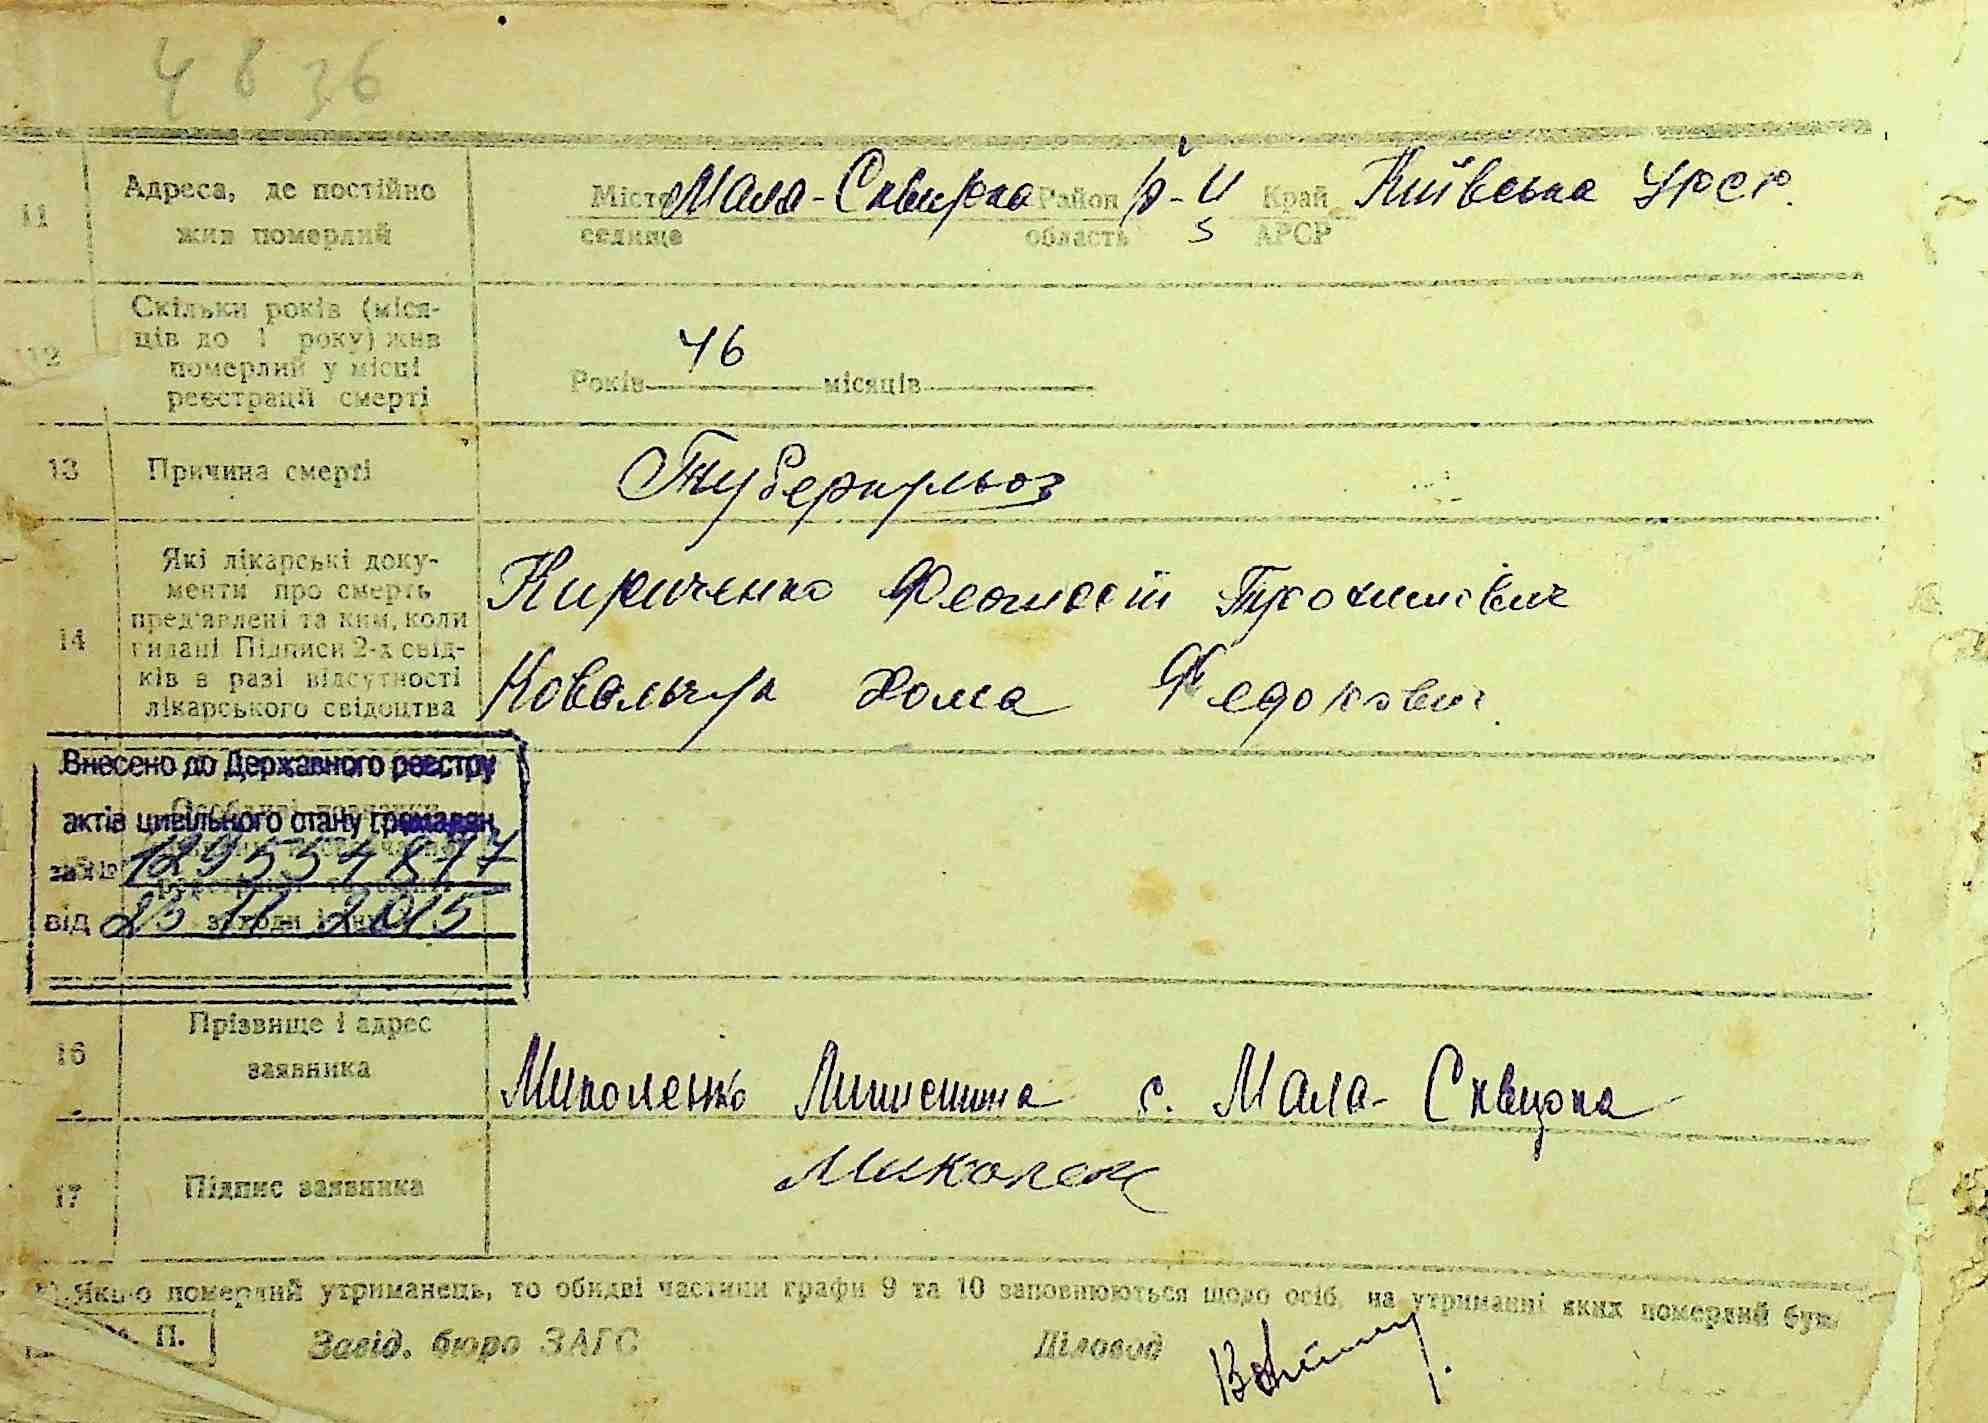 4836
11 Адреса, де постійно жив померлий
Місто Мала-Сквирка Район р-н Край Київська УРСР.
селище область АРСР
12 Скільки років (міся-
ців до 1 року) жив
померлий у місці
реєстрації смерті
Років 46 місяців
13 Причина смерті Туберкульоз
14 Які лікарські доку-
менти про смерть
пред'явлені та ким, коли
видані Підписи 2-х свід-
ків в разі відсутності
лікарського свідоцтва
Кириченко Феодосій Трохимович
Ковальчук Хома Федорович.
Внесено до Державного реєстру
актів цивільного стану громадян
за №
від 25 11 2015
16 Прізвище і адрес
заявника
Миколенко с. Мала-Сквирка
17 Підпис заявника Миколен
Якщо померлий утриманець, то обидві частини графи 9 та 10 заповнюються щодо осіб, на утриманні яких померлий був
М. П. Завід. бюро ЗАГС Діловод